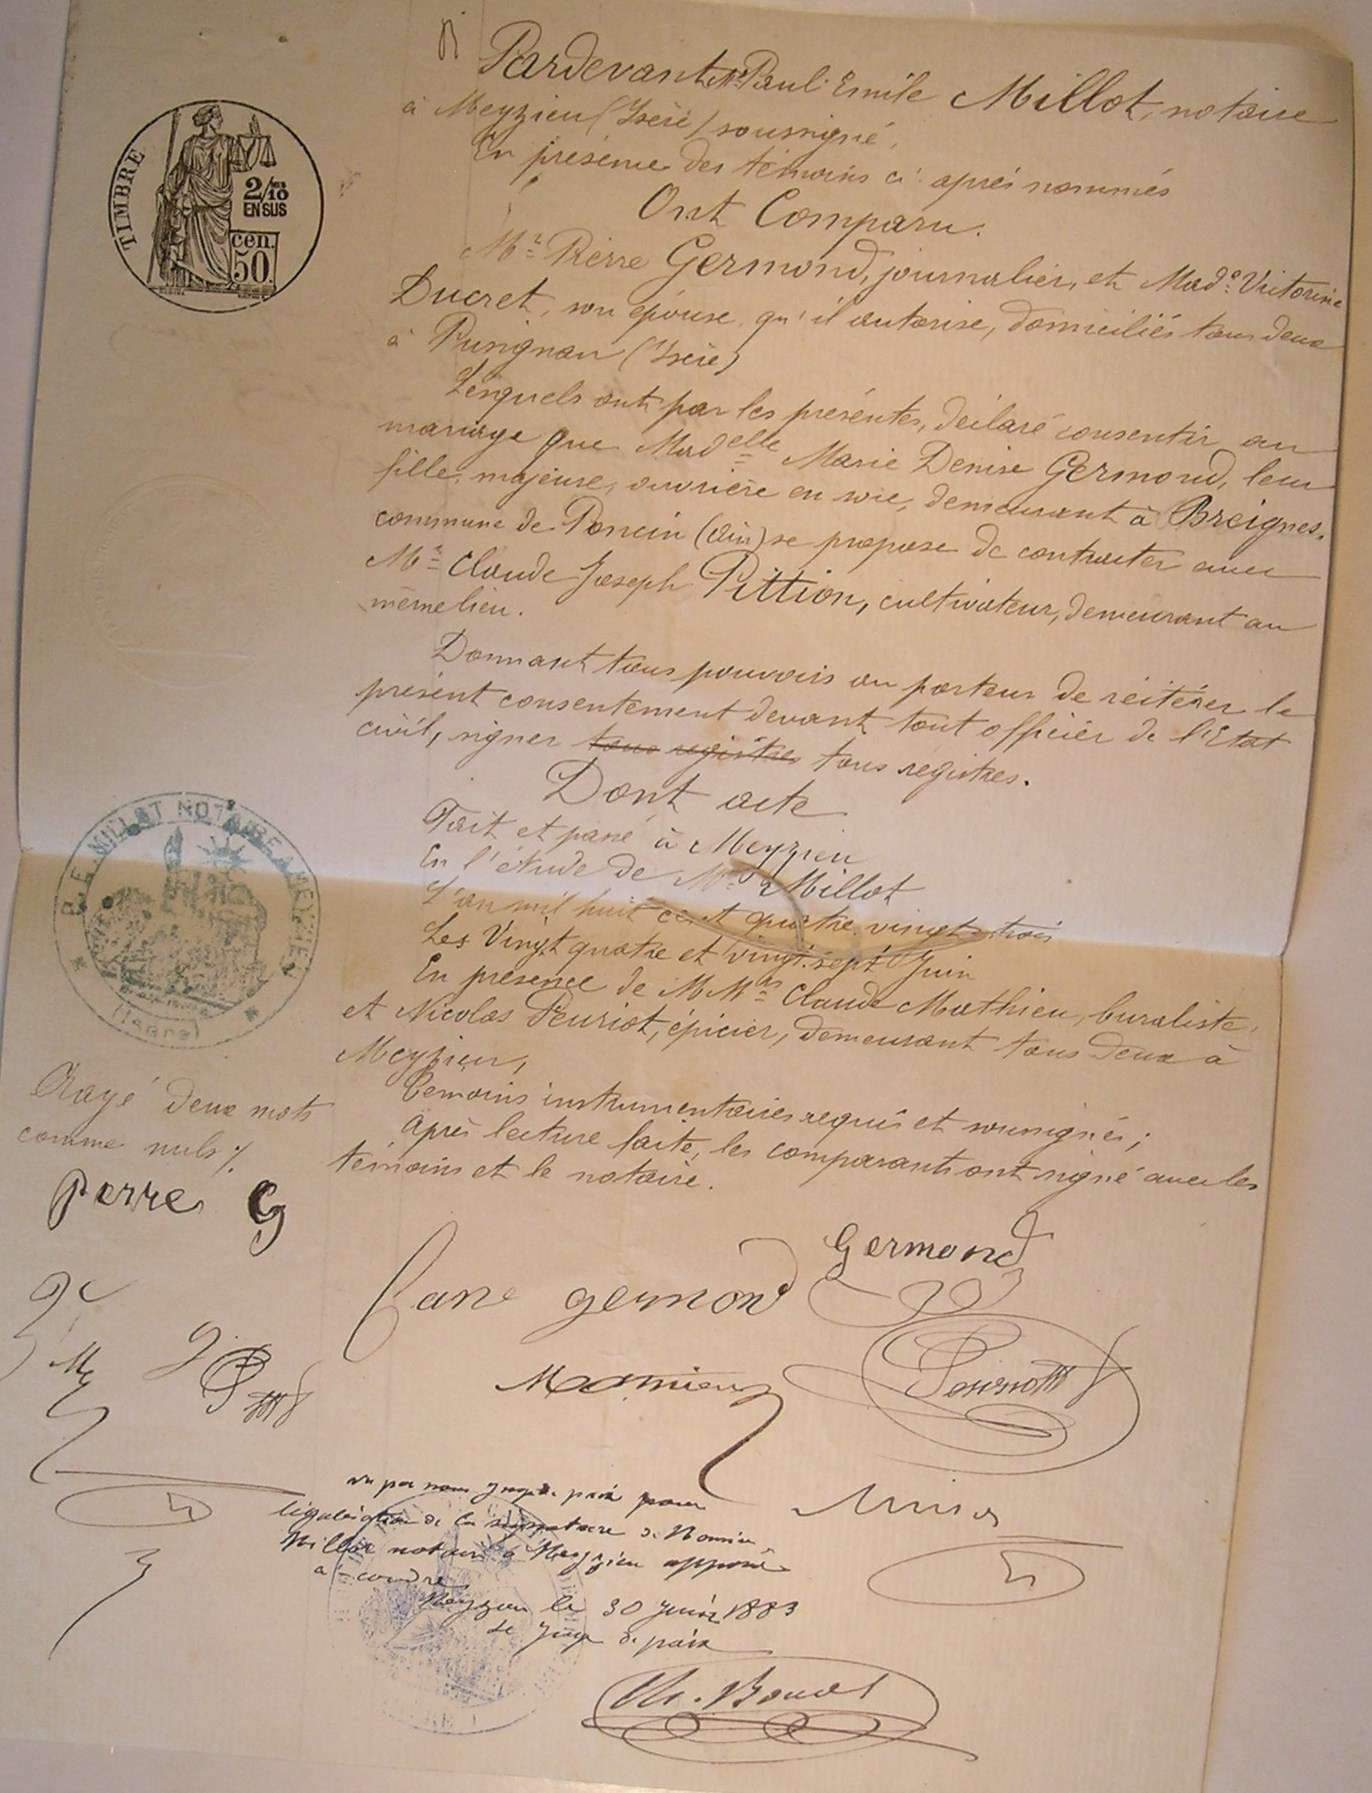 Pardevant Me Paul Emile Millot, notaire
à Meyzieu (Isère) soussigné,
En présence des témoins ci-après nommés
Ont Comparu.
Mr Pierre Germond, journalier, et Made Victorine
Ducret, son épouse qu'il autorise, domiciliés tous deux
à Pusignan (Isère)
Lesquels ont par les présentes, déclaré consentir au
mariage que Madelle Marie Denise Germond, leur
fille majeure, ouvrière en soie, demeurant à Breignes,
commune de Poncin (Ain) se propose de contracter avec
Mr Claude Joseph Pittion, cultivateur, demeurant au
même lieu.
Donnant tous pouvoirs au porteur de réitérer le
présent consentement devant tout officier de l'Etat
civil, signer tous registres tous registres.
Dont acte
Fait et passé à Meyzieu
En l'étude de Me Millot
L'an mil huit cent quatre vingt trois
Les Vingt quatre et vingt sept Juin
En présence de MMrs Claude Mathieu, buraliste,
et Nicolas Peuriot, épicier, demeurant tous deux à
Meyzieu,
Témoins instrumentaires requis et soussignés;
Après lecture faite, les comparants ont signé avec les
témoins et le notaire.
TIMBRE
2/10
EN SUS
50 cen.
P. E. MILLOT NOTAIRE A MEYZIEU
(Isère)
Rayé deux mots
comme nuls
Pierre G
Germond
germond
vu par nous juge de paix pour
légalisation de la signature de Monsieur
Millot notaire à Meyzieu apposée
Meyzieu le 30 juin 1883
Le juge de paix